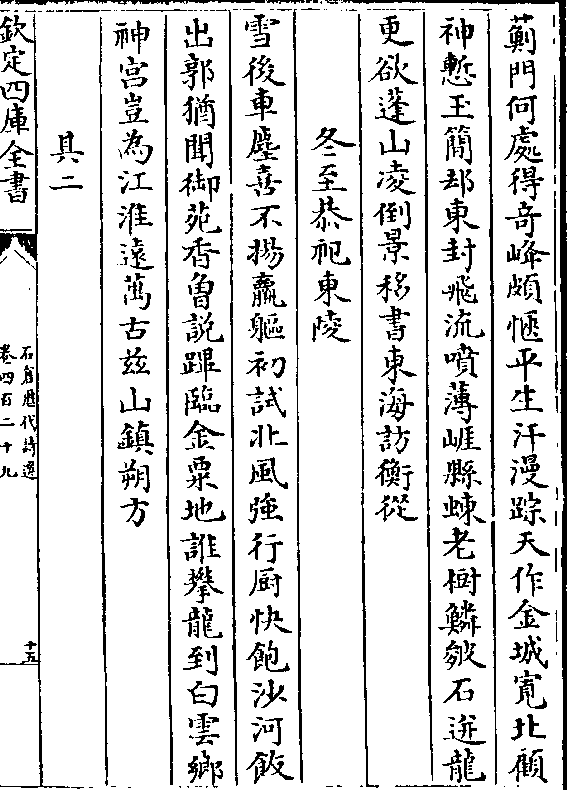 薊門何處得竒峰頗愜平生汗漫踪天作金城寛北顧
神慙玉簡却東封飛流噴薄崕縣蝀老樹鱗皴石迸龍
更欲蓬山凌倒景移書東海訪衡從
冬至恭祀東陵
雪後車塵喜不揚羸軀初試北風強行厨快飽沙河飯
出郭猶聞御苑香曾說蹕臨金粟地誰攀龍到白雲鄉
神宫豈為江淮遠萬古兹山鎮朔方
其二
欽定四庫全書
石倉歴代詩選
卷四百二十九
十五